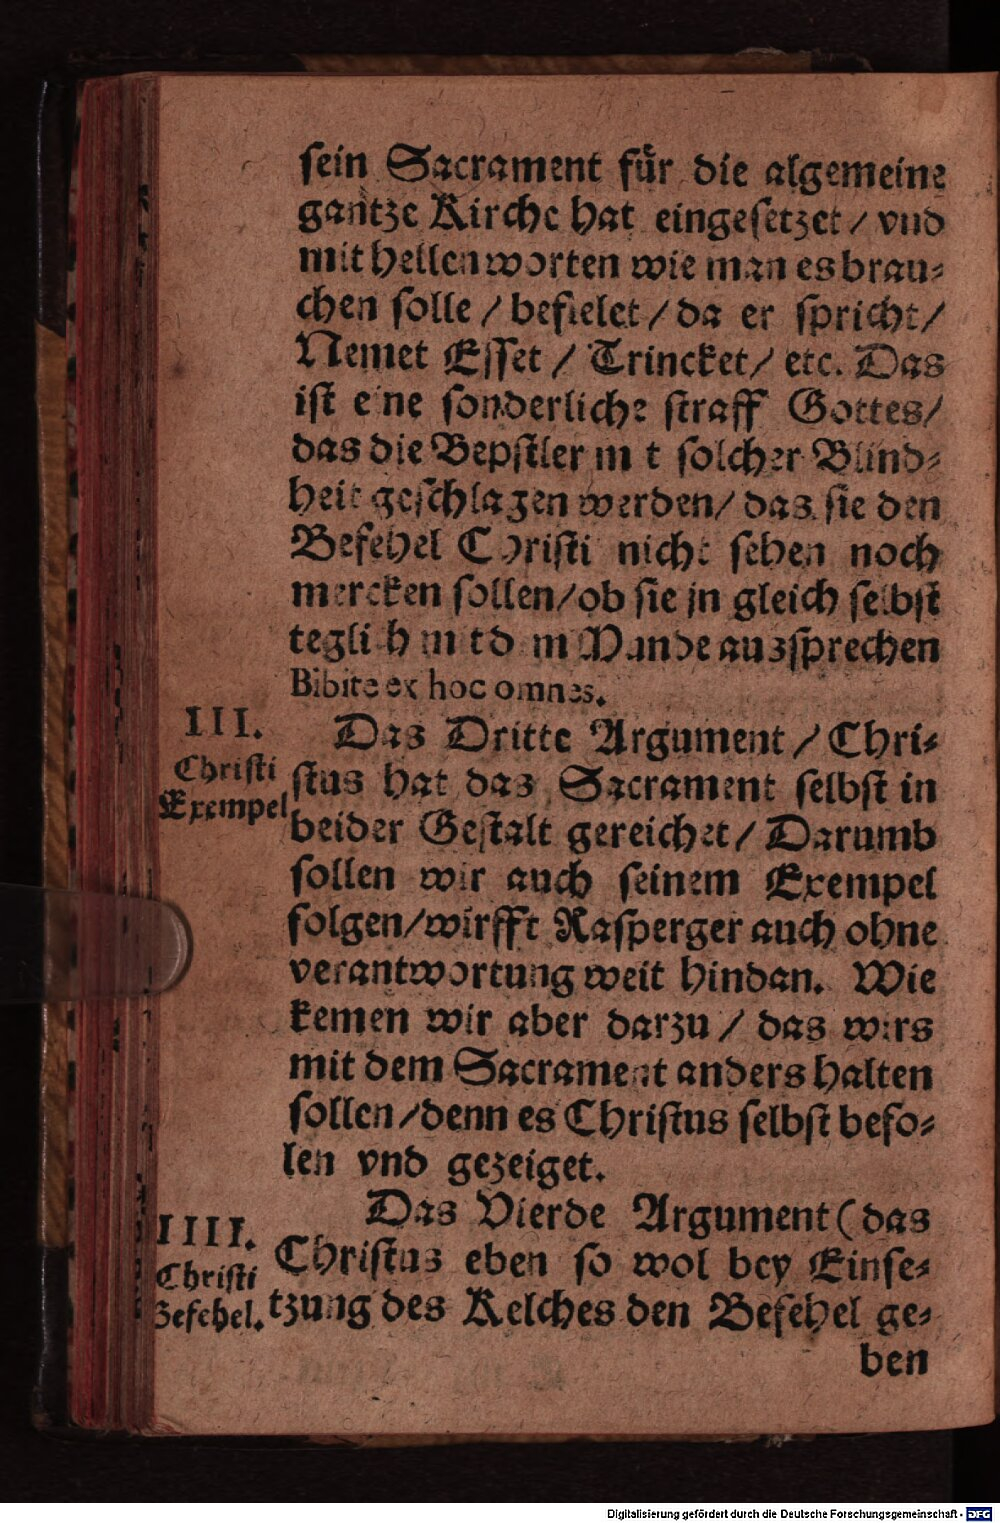 sein Sacrament fuͤr die algemeine
gantze Kirche hat eingesetzet / vnd
mit hellen worten wie man es brau⸗
chen solle / befielet / da er spricht /
Nemet Esset / Trincket / etc. Das
ist eine sonderliche straff Gottes /
das die Bepstler mit solcher Blind⸗
heit geschlagen werden / das sie den
Befehel Christi nicht sehen noch
mercken sollen / ob sie jn gleich selbst
teglich mit dem Munde aussprechen
Bibite ex hoc omnes.
III.
Christi
Exempel
Das Dritte Argument / Chri⸗
stus hat das Sacrament selbst in
beider Gestalt gereichet / Darumb
sollen wir auch seinem Exempel
folgen / wirfft Rasperger auch ohne
verantwortung weit hindan. Wie
kemen wir aber darzu / das wirs
mit dem Sacrament anders halten
sollen / denn es Christus selbst befo⸗
len vnd gezeiget.
IIII.
Christi
Befehel.
Das Vierde Argument (das
Christus eben so wol bey Einse⸗
tzung des Kelches den Befehel ge⸗
ben
Digitalisierung gefördert durch die Deutsche Forschungsgemeinschaft - DFG